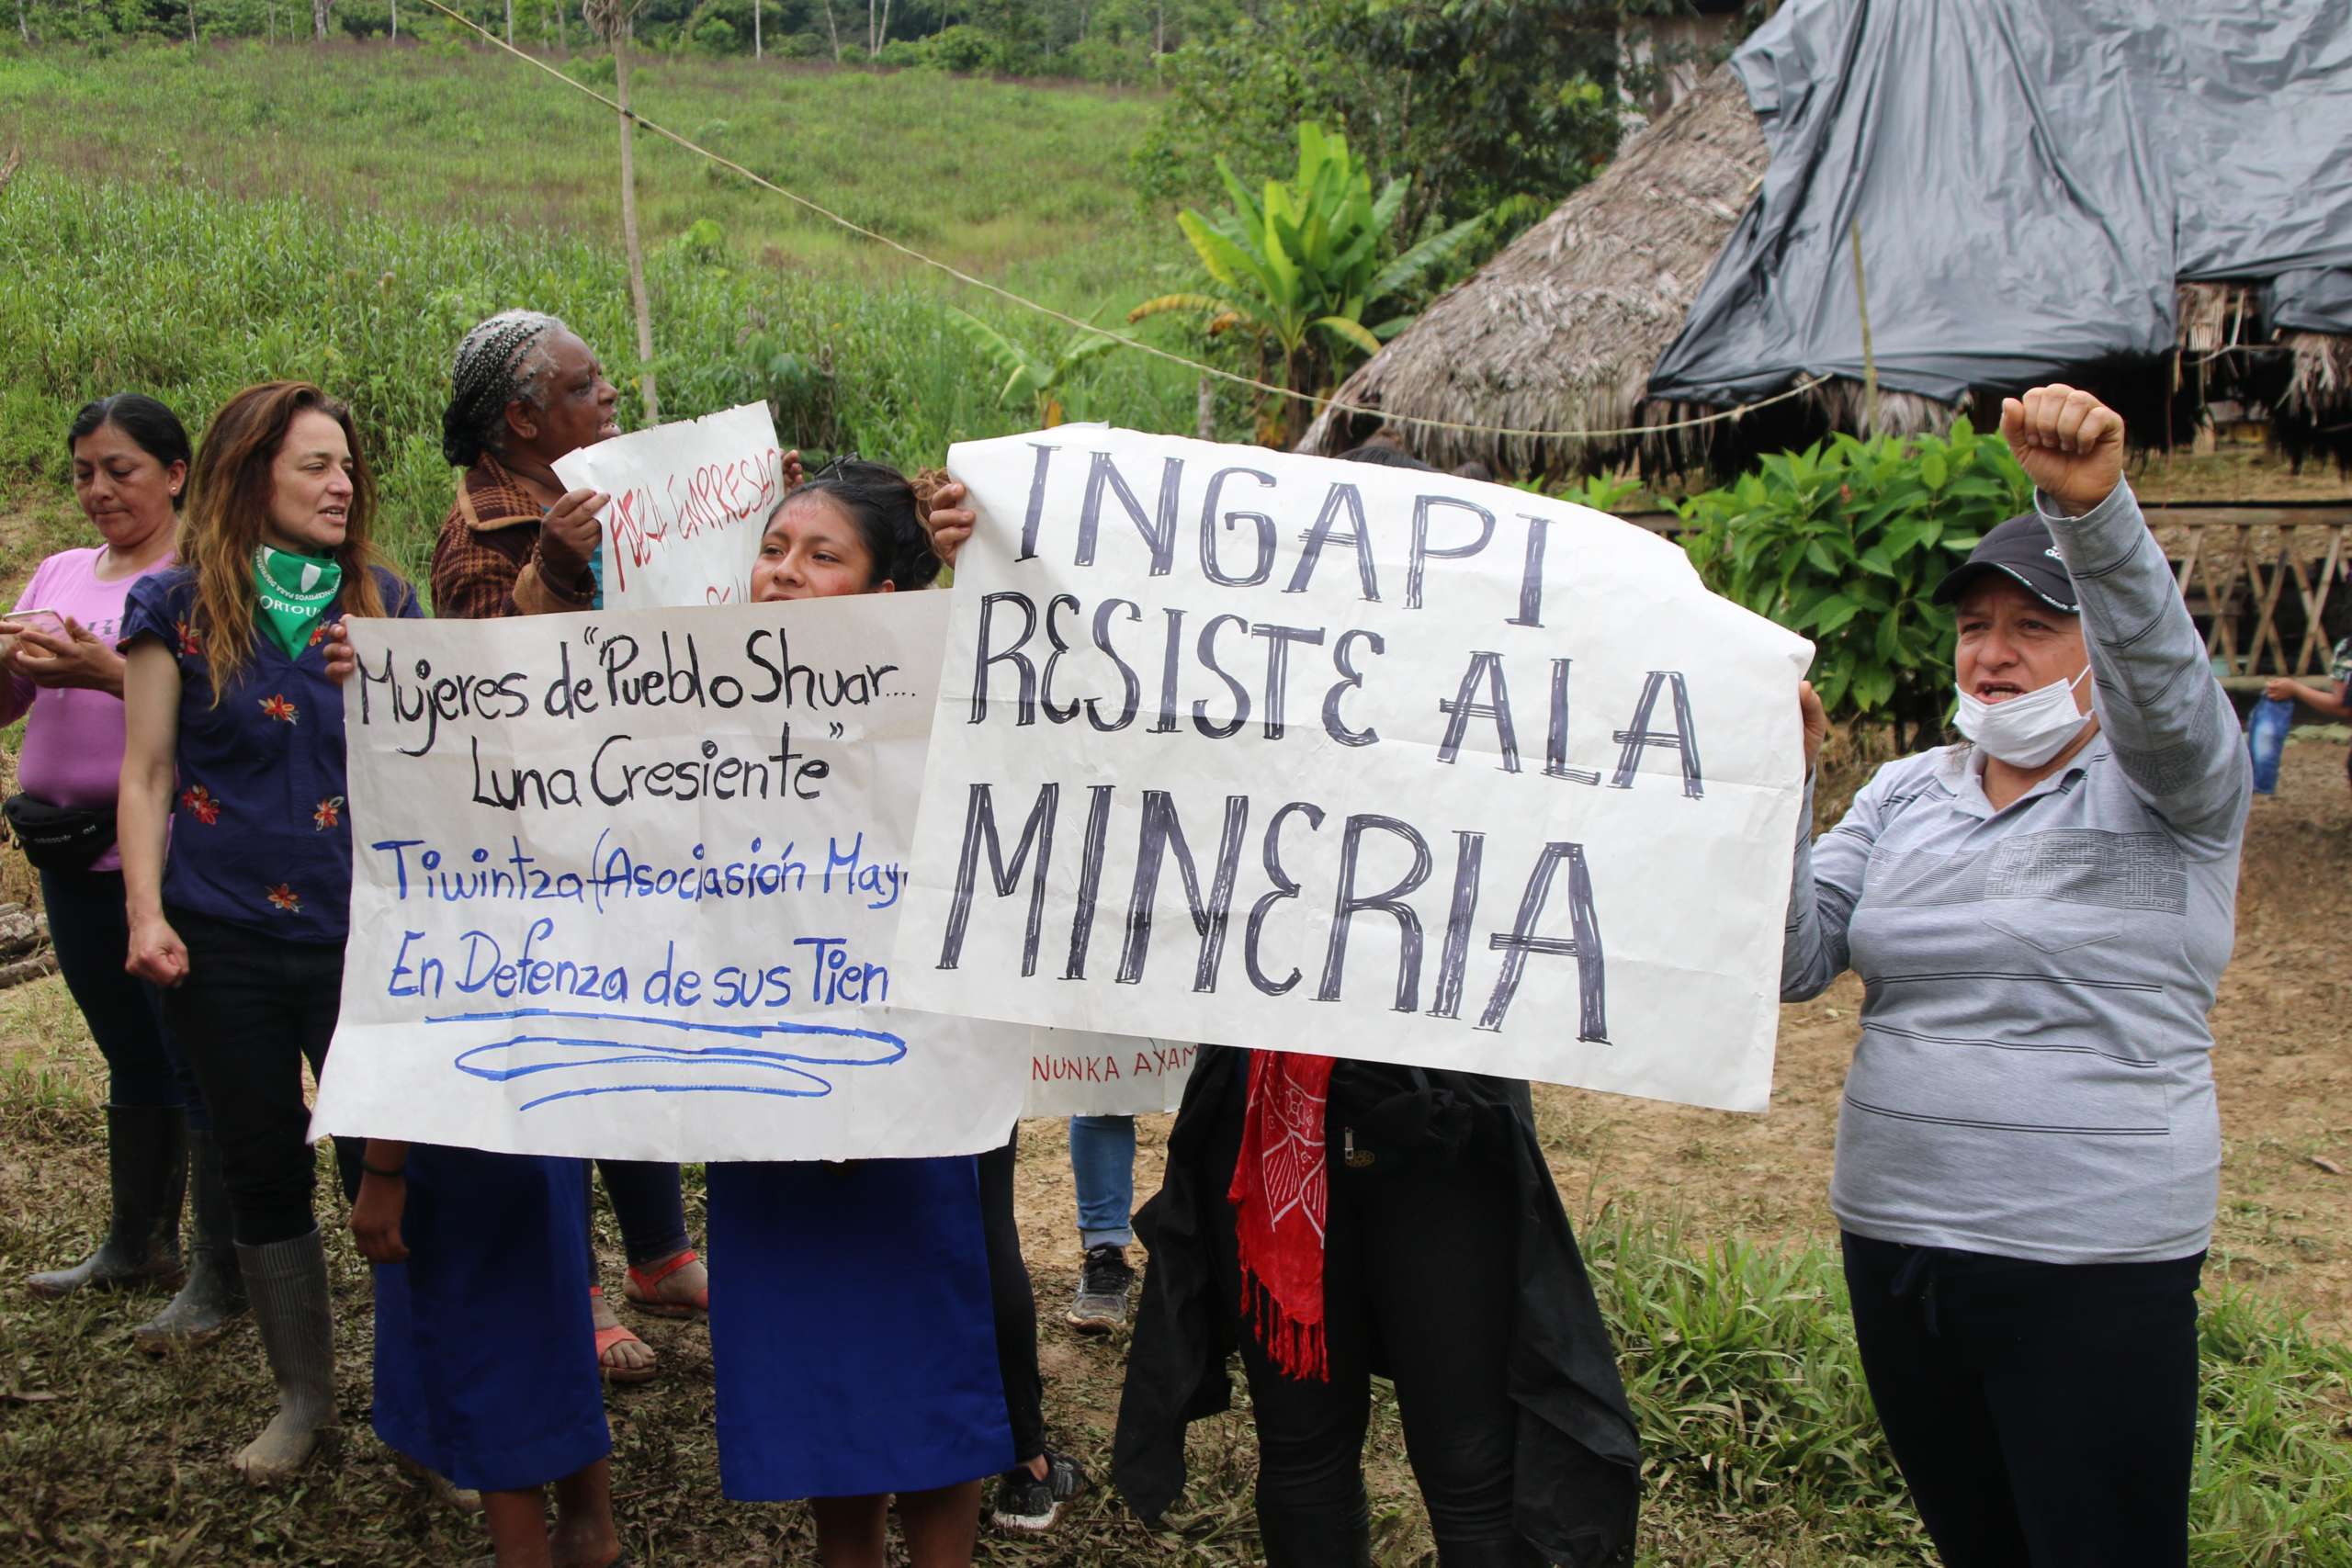 FUERA EMPRESAS
Mujeres de "Pueblo Shuar....
Luna Cresiente"
Tiwintza (Asociasión May
En Defenza de sus Tien
INGAPI
RESISTE ALA
MINERIA
NUNKA AYAM